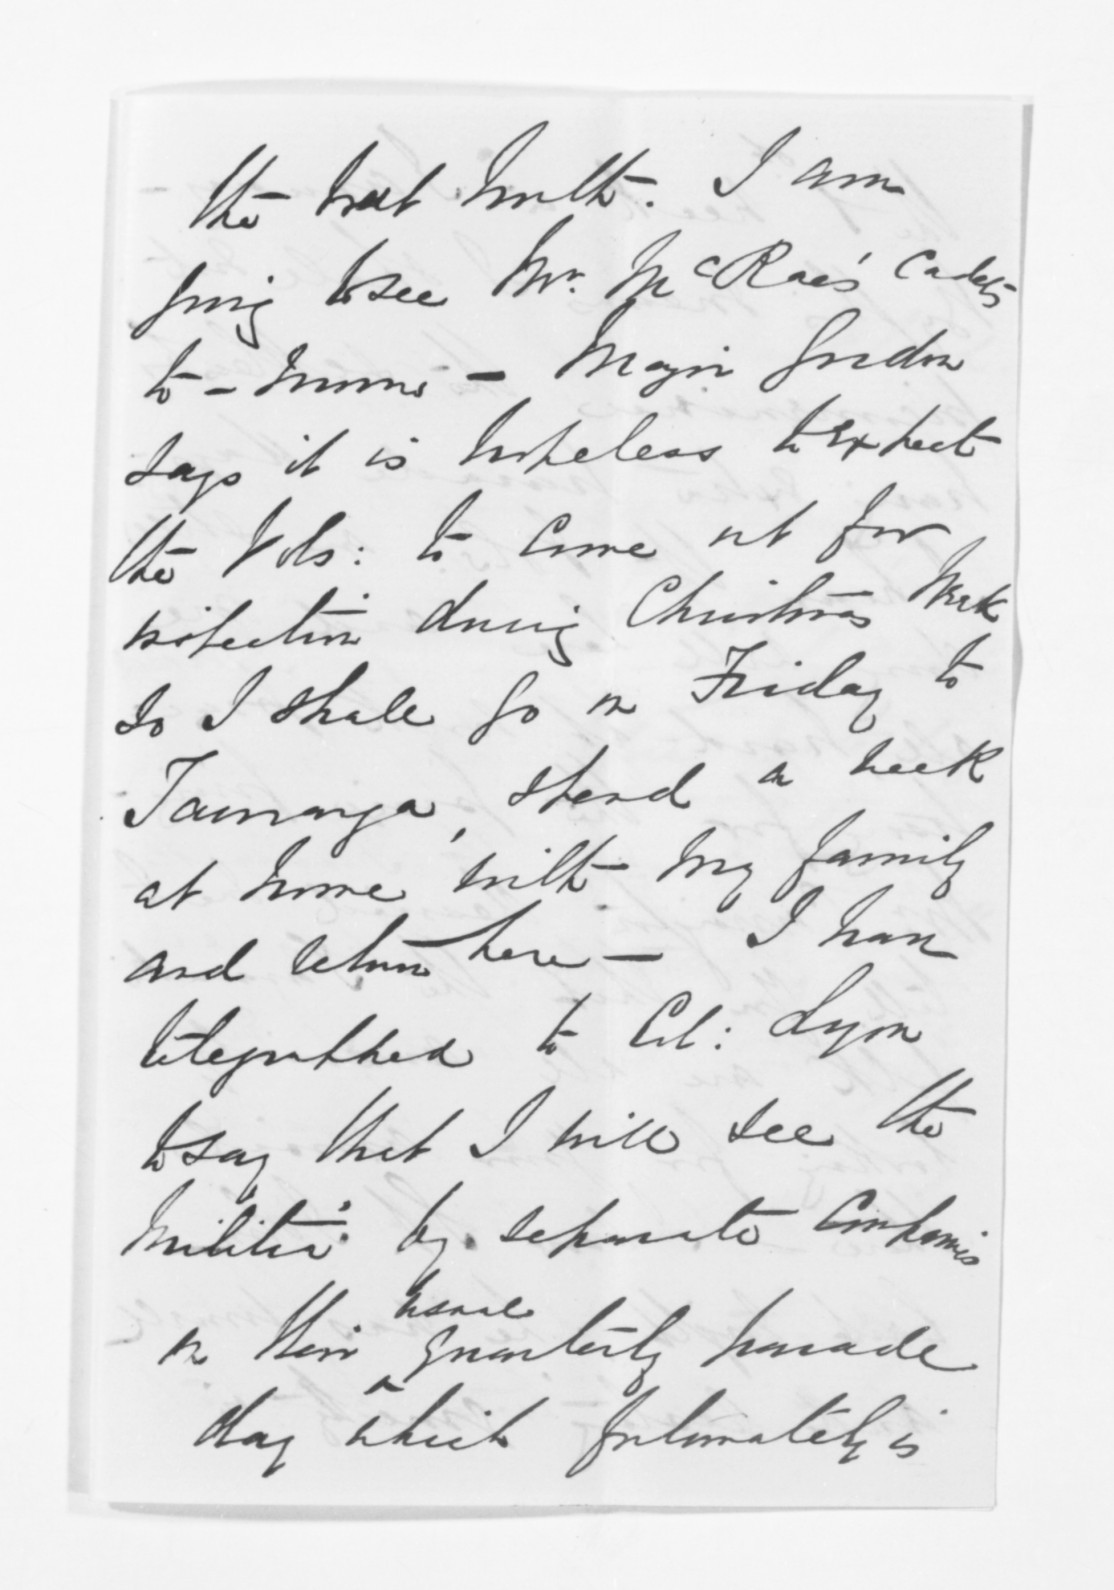 the next Month. I am
going to see Mr. McRae's Cadets
to-morrow — Major Gordon
says it is hopeless to expect
the Vols: to come out for
inspection during Christmas Week
So I shall go on Friday to
Tauranga, spend a week
at home with my family
and return here — I have
telegraphed to Col: Lyon
to say that I will see the
Militia by separate Companies
on their usual quarterly parade
day which fortunately is